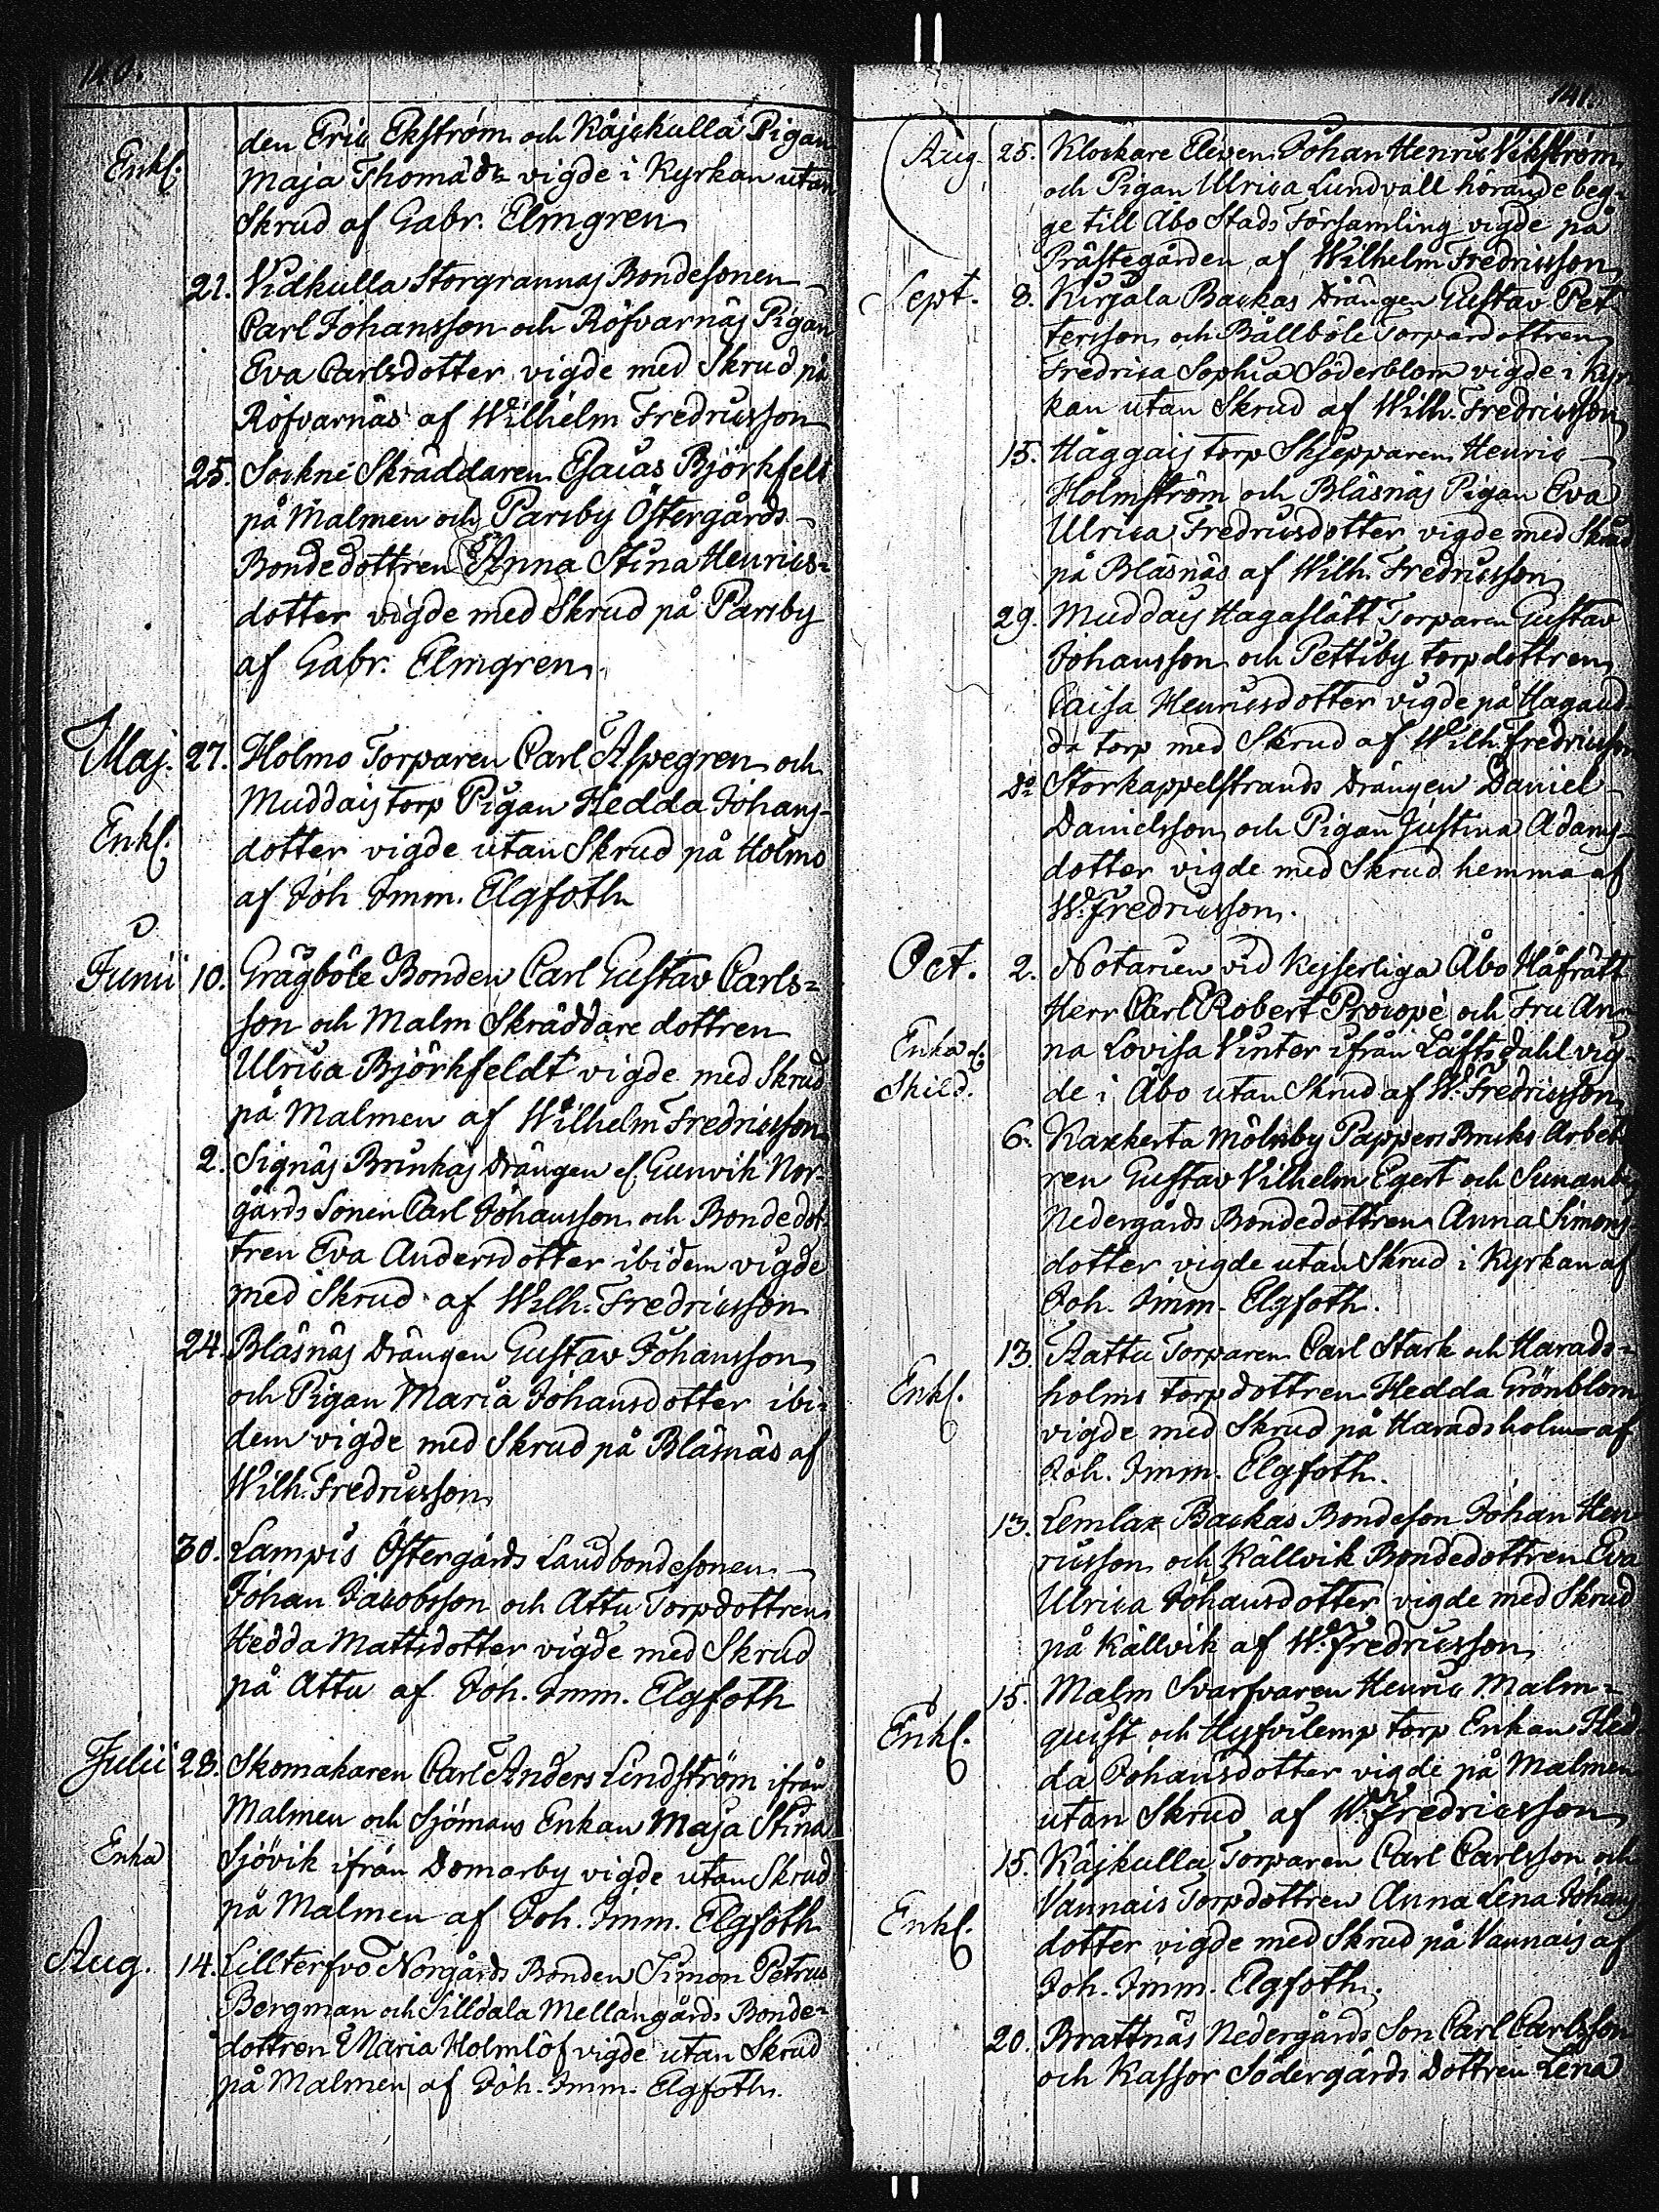 140.
den Eric Ekström och Kåjskulla Pigan
Enkl. Maja Thomædr vigde i Kyrkan utan
Skrud af Gabr. Elmgren
21. Vidkulla Storgrannas Bondesonen
Carl Johansson och Röfvarnäs Pigan
Eva Carlsdotter vigde med Skrud på
Röfvarnäs af Wilhelm Fredricsson
25. Sockne Skräddaren Esaias Björkfelt
på Malmen och Parsby Östergårds
Bondedottren Anna Stina Henrics=
dotter vigde med Skrud på Parsby
af Gabr. Elmgren
Maj. 27. Holmo Torparen Carl Aspegren och
Muddais torp Pigan Hedda Johans-
Enkl. dotter vigde utan Skrud på Holmo
af Joh Imm. Elgfoth
Junii 10. Grägböle Bonden Carl Gustav Carls=
son och Malm Skräddare dottren
Ulrica Björkfeldt vigde med Skrud
på Malmen af Wilhelm Fredricsson
2. Signäs Brinkas Drängen el. Gunvik Nor-
gårds Sonen Carl Johansson och Bondedot-
tren Eva Andersdotter ibidem vigde
med Skrud af Wilh. Fredricsson
24. Bläsnäs Drängen Gustav Johansson
och Pigan Maria Johansdotter ibi=
dem vigde med Skrud på Bläsnäs af
Wilh. Fredricsson
30. Lampis Östergårds Landbondesonen
Johan Jacobsson och Attu Torpdottren
Hedda Mattsdotter vigde med Skrud
på Attu af Joh. Imm. Elgfoth
Julii 28. Skomakaren Carl Anders Lindström ifrån
Malmen och Sjömans Enkan Maja Stina
Enka Sjövik ifrån Domarby vigde utan Skrud
på Malmen af Joh. Imm. Elgfoth
Aug. 14. Lillterfvo Norgårds Bonden Simon Petrus
Bergman och Silldala Mellangårds Bonde=
dottren Maria Holmlöf vigde utan Skrud
på Malmen af Joh. Imm. Elgfoth.
141.
Aug. 25. Klockare Eleven Johan Henric Vikström
och Pigan Ulrica Lundvall hörande beg-
ge till Åbo Stads Församling vigde på
Prästegården af Wilhelm Fredricsson
Sept. 8. Kirjala Backas Drängen Gustav Pet-
tersson och Bållböle Torpardottren
Fredrica Sophia Söderblom vigde i Kyr-
kan utan Skrud af Wilh. Fredricsson
15. Haggais torp Skepparen Henric
Holmström och Bläsnäs Pigan Eva
Ulrica Fredricsdotter vigde med Skrud
på Bläsnäs af Wilh. Fredricsson
29. Muddais Hagaslätt Torparen Gustav
Johansson och Pettiby torpdottren
Caisa Henricsdotter vigde på Hagaud-
da torp med Skrud af Wilh. Fredricsson
Do Storkappelstrands Drängen Daniel
Danielsson och Pigan Justina Adams-
dotter vigde med Skrud hemma af
W. Fredricsson.
Oct. 2. Notarien vid Kejserliga Åbo Håfrätt
Herr Carl Robert Procopé och Fru An-
Enka el. na Lovisa Vinter ifrån Låftsdahl vig-
Skild. de i Åbo utan Skrud af W. Fredricsson
6. Kaxkerta Mölnby Pappers Bruks Arbeta-
ren Gustav Vilhelm Egert och Sunanby
Nedergårds Bondedottren Anna Simons
dotter vigde utan Skrud i Kyrkan af
Joh. Imm. Elgfoth.
13. Attu Torparen Carl Stark och Harads=
Enkl. holms torpdottren Hedda Grönblom
vigde med Skrud på Haradsholm af
Joh. Imm. Elgfoth.
13. Lemlax Backas Bondeson Johan Hen-
ricsson och Källvik Bondedottren Eva
Ulrica Johansdotter vigde med Skrud
på Källvik af W. Fredricsson
15. Malm Svarfvaren Henric Malm=
Enkl. quist och Hyfvilemp torp Enkan Hed-
da Johansdotter vigde på Malmen
utan Skrud af W. Fredricsson
15. Kåjkulla Torparen Carl Carlsson och
Enkl. Vannais Torpdottren Anna Lena Johans
dotter vigde med Skrud på Vannais af
Joh. Imm. Elgfoth.
20. Brattnäs Nedergårds Son Carl Carlsson
och Kassor Södergårds Dottren Lena